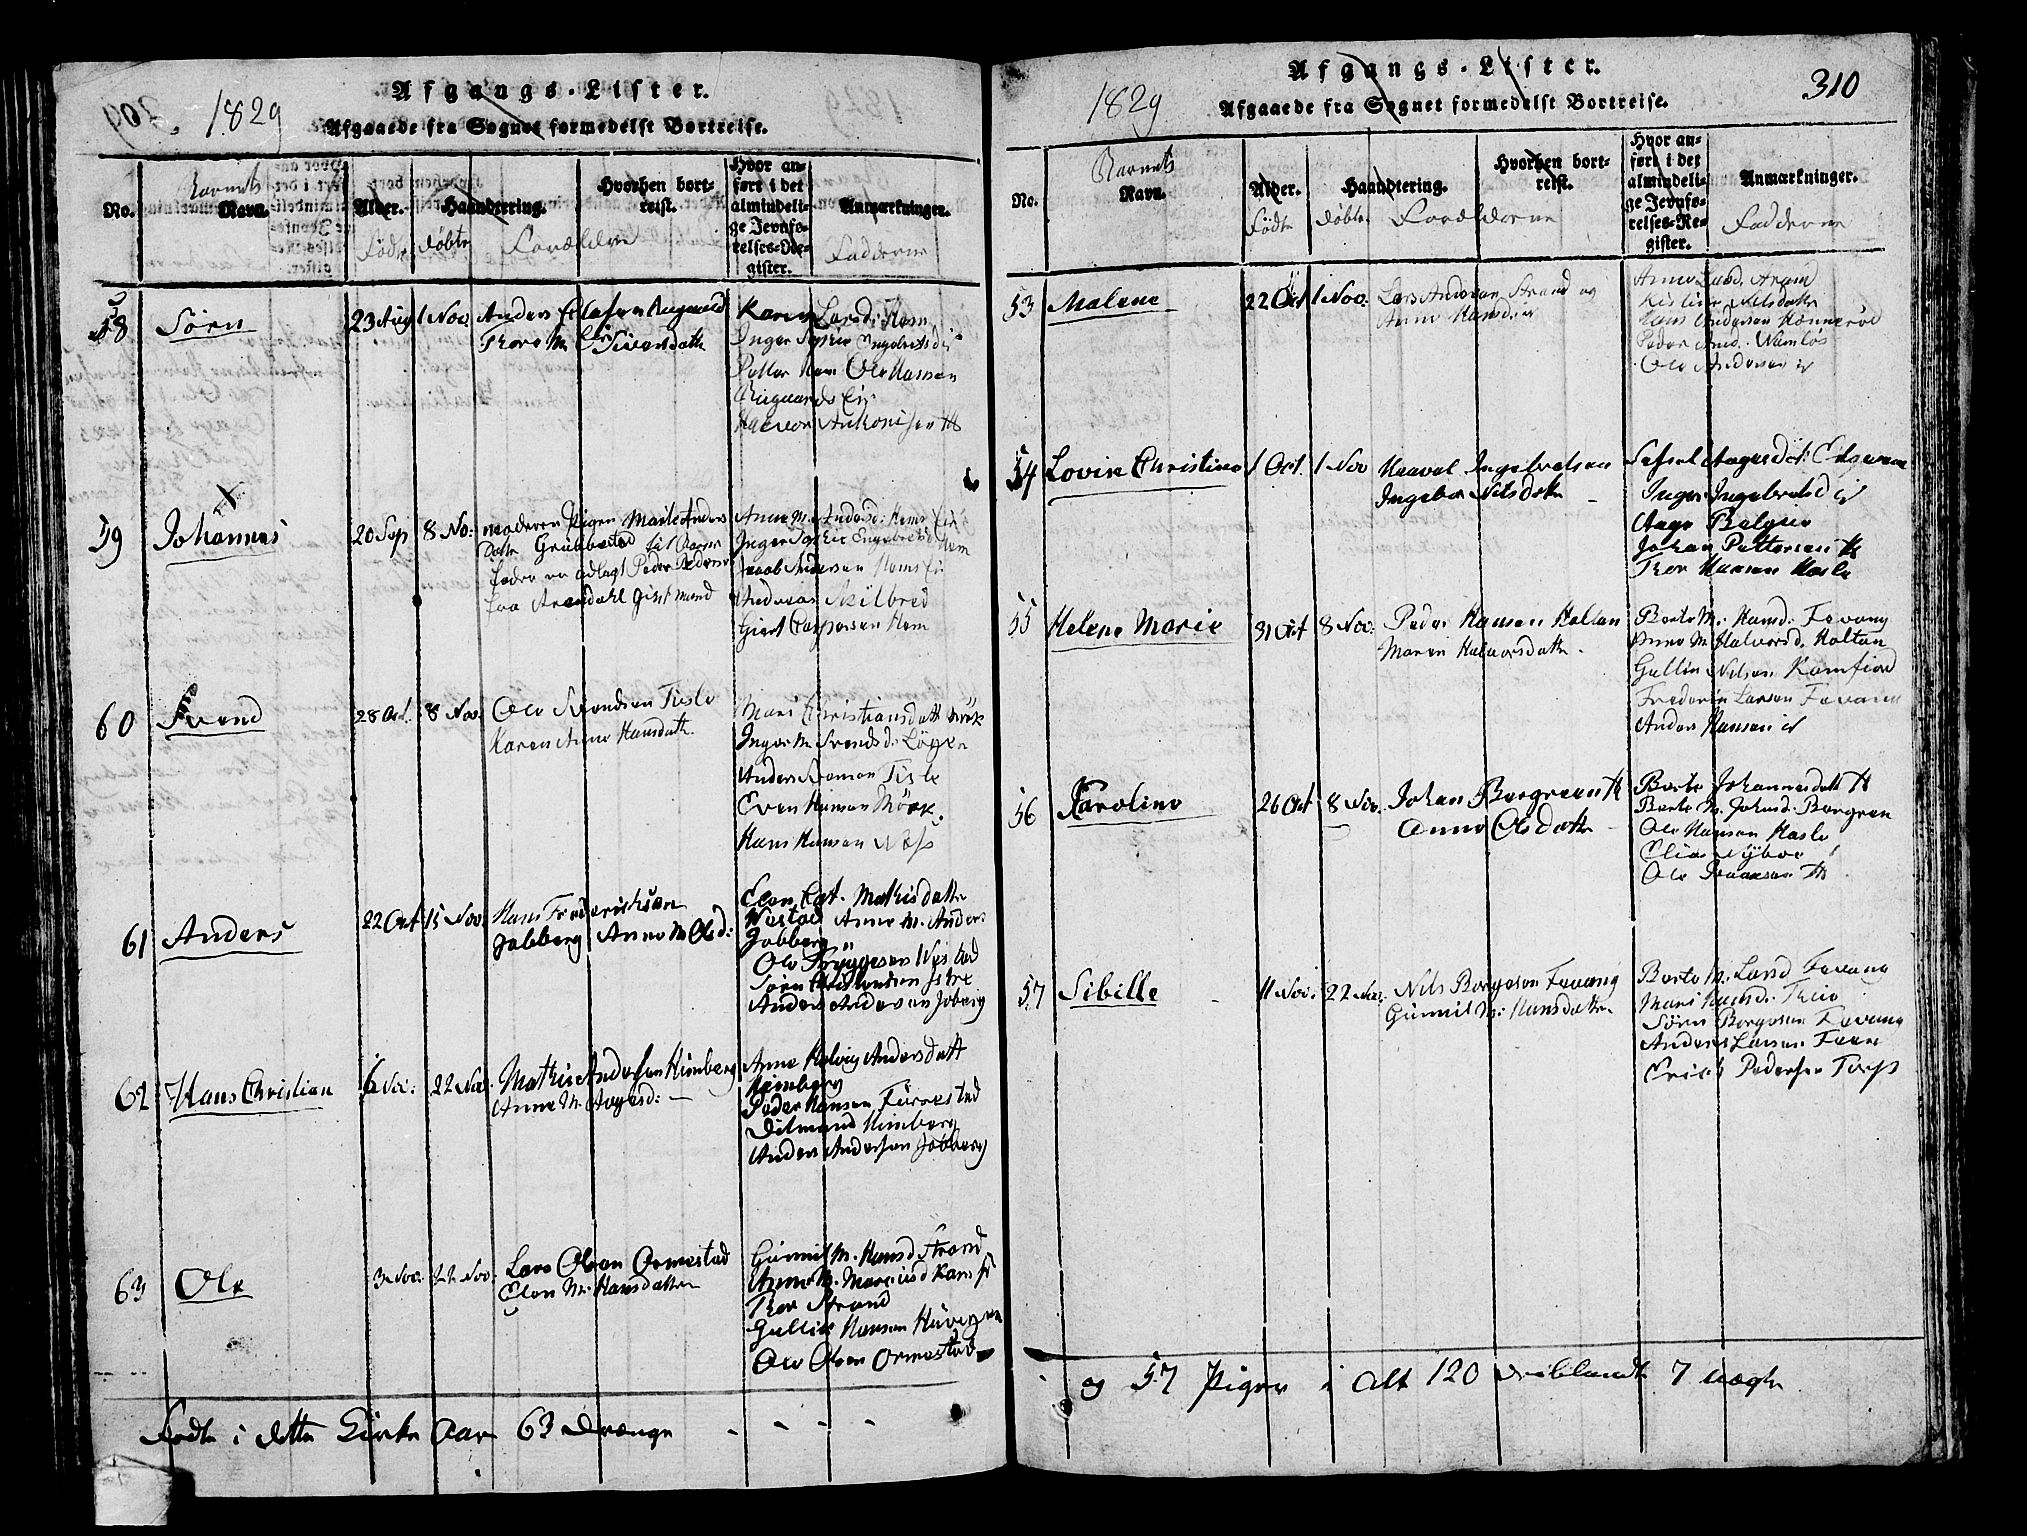 1829
Afgangs-Lister.
Afgaaede fra Sognet formedelst Bortreise.
No.
Barnets
Navn.
Alder.
Haandtering.
Hvorhen bort-
reist.
Hvor an-
ført i det
almindeli-
ge Jevnfø-
relses-Re-
gister.
Anmærkninger.
Fødte
døbte
Forældrene
Fadderne
58 Sørn 23 Aug 1 Nov.
Anders
Karen Larsd: Hem
Inger Sophie Ingebretsd ir
Petter Hem Ole Hansen
59 Johannes 20 Sep 8 No:
moderen Pigen Marie Anders
Datter
Anne M. Andersd: Hems Eie
Inger Sophie Engebretsd Hem
Jacob Andersen Hems Ei
Andreas Skilbred
Giert Caspersen Hem
60 Svend 28 Oct. 8 Nov.
Ole Svendsen Tisle
Karen Anne Hansdatter
Mari Christiansdatt Mørk
Inger M. Svendsd. Løgen
Anders Tisle
Even Hansen Mørk.
Hans Hansen Næss
61 Anders 22 Oct 15 Nov.
Hans Frederichsen
Jobberg Anne M Olsd:
Elen Cat. Mathisdatter
Vestad Anne M. Anders
Jobberg
Ole Tryggesen Vestad
Sørn Christensen Istre
Anders Andersen Joberg
62 Hans Christian 6 Nov: 22 Nov.
Mathis Andersen Himberg
Anne M. Aagesd: —
Anne Helvig Andersdatt
Himberg
Peder Hansen Furrestad
Ditmand Himberg
Anders Andersen Jobberg
63 Ole 3 Nov. 22 Nov.
Lars Olsen Ormestad
Elen M. Hansdatter
Gunnil M. Hansd Strand
Anne M. Mareusd Kamfi
Thor Strand
Gullik Hansen
Ole Olsen Ormestad
Fødte i dette Kirke Aar 63 Drænge - - - -
1829
Afgangs-Lister.
310
Afgaaede fra Sognet formedelst Bortreise.
No.
Barnets
Navn.
Alder.
Haandtering.
Hvorhen bort-
reist.
Hvor an-
ført i det
almindeli-
ge Jevnfø-
relses-Re-
gister.
Anmærkninger.
Fødte
døbte
Forældrene
Fadderne
53 Malene 22 Oct 1 Nov:
Lars Andersen Strand og
Anne Hansd: ir
Anne Larsd. Strand
Kistine Nilsdatter
Hans Andersen Hønnerød
Peder And. Namløs
Ole Andersen ir
54 Lovise Christine 1 Oct. 1 Nov
Haaval Ingebretsen
Ingebor Nilsdatter
Sissel Aagesdat: Edgeveen
Inger Ingebretsd ir
Aage Bølgen
Johan Pettersen H
Thor Hansen Hasle
55 Helene Marie 31 Oct 8 Nov:
Peder Hansen Holtan
Maren Halvorsdatter
Berte M. Hansd: Fevang
Anne M Halvorsd. Holtan
Gullik Nilsen Kamfiord
Frederik Larsen Fevang
Anders Hansen ir
56 Karoline 26 Oct 8 Nov.
Johan Borgreen H
Anne Olsdatter
Berte Johannesdatt H
Berte M. Johnsd: Borgren
Ole Hansen Hasle
Elias Nyboe
Ole Svensen H
57 Sibille 11 Nov: 22 Nov:
Nils Borgesen Fevang
Gunnil M: Hansdatter
Berte M. Larsd Fevang
Mari Hansd.
Sørn Borgesen Fevang
Anders Larsen Feen
Erich Pedersen Torp
og 57 Piger i Alt 120 deriblandt 7 uægte